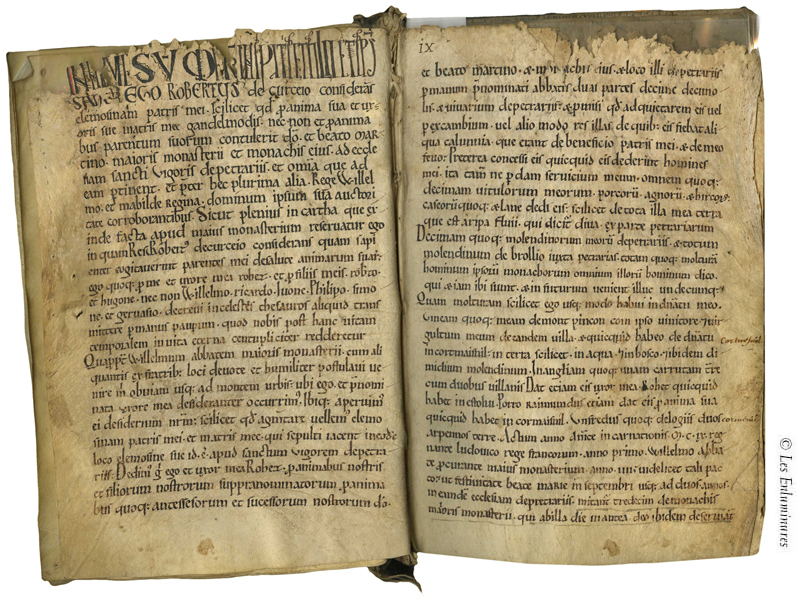 EGO ROBERTUS de curceio considerans
elemosinam patris mei. scilicet qd panima sua et ux
oris sue matris mee gandelmodis. nec non et panima
bus parentum suorum contulerit do. et beato mar
tino. maioris monasterii et monachis eius. ad eccle
siam sancti vigoris depetrariis. et omia que ad
eam ptinent. et pcer hec plurima alia. Rege Willel
mo. et mabilde regina. dominum ipsum sua auctori
tate corroborantibus. Sicut plenius in cartha que ex
inde facta apud maius monasterium reservatur ego
in quam Robertus decurceio considerans quam sapi
enter cogitaverint parentes mei desalute animarum suarum
ego quoq; p me et uxore mea robet. et p filiis meis. robto.
et hugone. nec non Willelmo. ricardo. Ivone. Philipo. simo
ne. et gervasio. decrevi incelestes thesauros aliquid trans
mittere p manus pauperum. quod nobis post hanc vitam
temporalem in vita eterna centupliciter redderetur
Quappe Willelmum abbatem maioris monasterii. cum ali
quantis ex fratribus loci devote et humiliter postulavi ve
nire in obviam usq; ad montem urbis. ubi ego et pnomi
nata uxore mea desideranter occurrimus. Ibiq; aperuimus
ei desiderium nrm. scilicet qd augmentare vellemus elemo
sinam patris mei. et matris mee. qui sepulti iacent in eode
loco elemosine sue id e. apud sanctum Vigorem depetra
riis. Dedimus g ego et uxor mea Robet. p animabus nostris
et filiorum nostrorum suppranominatorum. p anima
bus quoq; antessesorum et sucessorum nostrorum do.
IX
et beato martino. & monachis eius. & loco illi depetrariis
p manum p nominati abbatis duas partes decime decimo
lis. & vivarium depetrariis. & p unisi qd adquietarem eis vel
p excambium. vel alio modo res illas de quib; eis fiebat ali
qua calumnia. que erant de beneficio patris mei. & de meo
fevo. Preterea concessi eis quicquid eis dederint homines
mei. ita tam ne pdam servicium meum. omnem quoq;
decimam vitulorum meorum. porcorum. agnorum. & hircorum.
caseorum quoq; & lane dedi eis. scilicet de tota illa mea terra
que est a ripa fluvii. qui dicit diva. ex parte petrariarum
Decimam quoq; molendinorum meorum depetrariis. & totum
molendinum de brollio iuxta petrarias. totam quoq; molturam
hominum ipsorum monachorum omnium illorum hominum dico.
qui & iam ibi sunt. & in futurum venient illuc undecunq;.
Quam molturam scilicet ego usq; modo habui in dominio meo.
Vineam quoq; meam demont pincon cum ipso vinitore. Vir
gultum meum decandem villa. & quicquid habeo
incormaisnil. in terra scilicet. in aqua. in bosco. Ibidem di
midium molendinum. In angliam quoq; unam carrucatam terre
cum duobus villanis Dat etiam eis uxor mea. Robet quicquid
habet in estoliu. Porro rainmundus etiam dat eis p anima sua
quicquid habet in cormaisnil. Unfredus quoq; delogiis duos
arpennos terre. Actum anno dnice incarnationis. M. c. ix. reg
nante ludovico rege francorum. anno primo. Willelmo abba
te. p curante maius monasterium. anno. videlicet tali pac
to. ut festivitate beate marie in septembri usq; ad duos annos.
in eandem ecclesiam depetrariis. mitant tredecim demonachis
maioris monasterii. qui ab illa die in antea do ibidem deserviant
© Les Enluminures